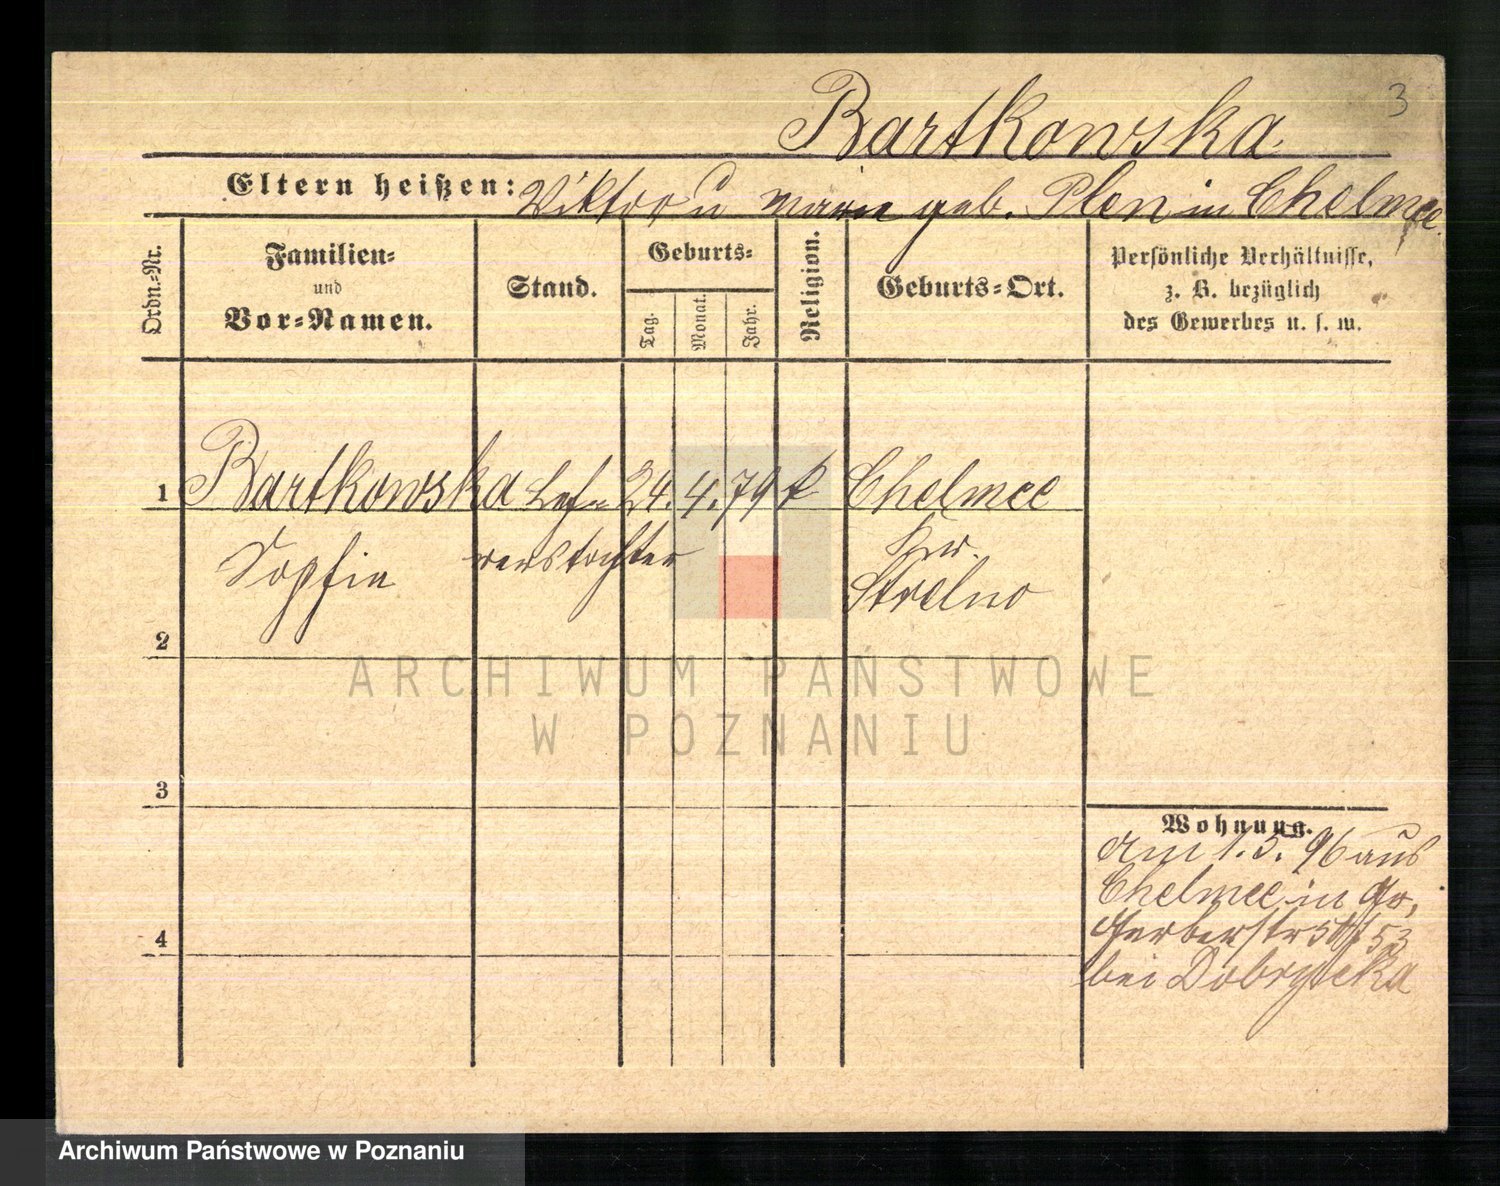 3
Bartkowska
Eltern heißen: Viktor u Marie geb. Plon in Chelmce.
Ordn.-Nr.
Familien-
und
Vor-Namen.
Stand.
Geburts-
Tag.
Monat.
Jahr.
Religion.
Geburts-Ort.
Persönliche Verhältnisse,
z. B. bezüglich
des Gewerbes u. s. w.
1 Bartkowska 24. 4. 79 k Chelmce
Sophie werstochter Krw.
Strelno
2
3
4
Wohnung.
Am 1. 5. 96 aus
Chelmce in Po,
Gerberstr 53
bei Dobrycka
ARCHIWUM PAŃSTWOWE
W POZNANIU
Archiwum Państwowe w Poznaniu